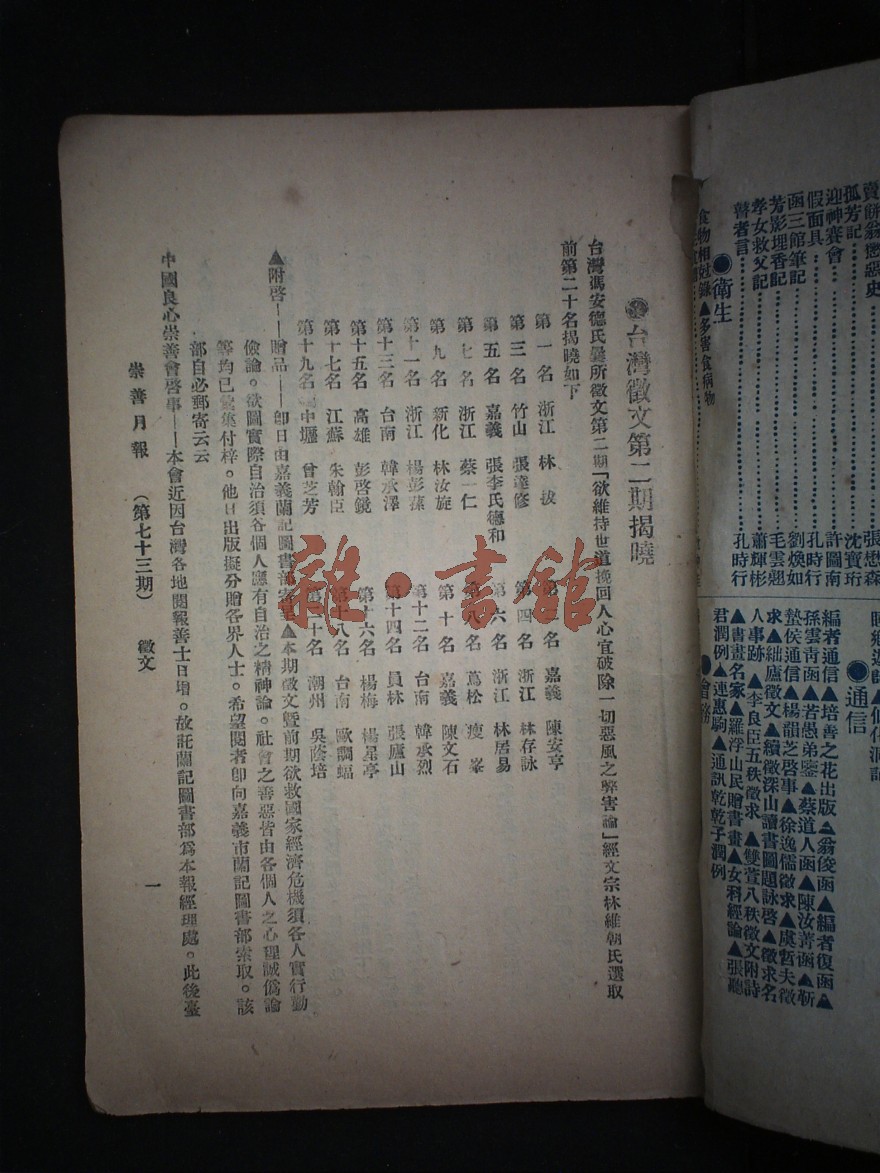 賣餅翁懲惡史……張懋森
孤芳記……沈寶珩
迎神賽會……許圖南
假面具……孔時行
函三館筆記……劉煥如
芳影埋香記……毛雲翹
孝女救父記……蕭輝彬
瞽者言……孔時行
●衛生
食物相尅錄▲多害食病物
●通信
編者通信▲培善之花出版▲翁俊函▲編者復函▲
孫雲靑函▲若愚弟鑒▲蔡道人函▲陳汝菁函▲靳
蟄侯通信▲楊韻芝啓事▲徐逸儒徵求▲虞哲夫徵
求▲絀廬徵文▲續徵深山讀書圖題詠啓▲徵求名
人事跡▲李良臣五秩徵求▲雙萱八秩徵文附詩
▲書畫名家▲羅浮山民贈書畫▲女科經論▲張聽
君潤例▲連惠駒▲通訊乾乾子潤例
●會務
台灣徵文第二期揭曉
台灣馮安德氏曇所徵文第二期「欲維持世道挽回人心宜破除一切惡風之弊害論」經文宗林維朝氏選取
前第二十名揭曉如下
第一名 浙江 林拔 第二名 嘉義 陳安亨
第三名 竹山 張達修 第四名 浙江 林存詠
第五名 嘉義 張李氏德和 第六名 浙江 林居易
第七名 浙江 蔡一仁 第八名 蔦松 瘦峯
第九名 新化 林汝旋 第十名 嘉義 陳文石
第十一名 浙江 楊彭葆 第十二名 台南 韓承烈
第十三名 台南 韓承澤 第十四名 員林 張廬山
第十五名 高雄 彭啓鏡 第十六名 楊梅 楊星亭
第十七名 江蘇 朱翰臣 第十八名 台南 歐調蝠
第十九名 中壢 曾芝芳 第二十名 潮州 吳蔭培
▲附啓——贈品——卽日由嘉義蘭記圖書部寄呈▲本期徵文曁前期欲救國家經濟危機須各人實行勤
儉論。欲圖實際自治須各個人應有自治之精神論。社會之善惡皆由各個人之心理誠僞論
等均已彙集付梓。他日出版擬分贈各界人士。希望閱者卽向嘉義市蘭記圖書部索取。該
部自必郵寄云云
中國良心崇善會啓事——本會近因台灣各地閱報善士日增。故託蘭記圖書部爲本報經理處。此後臺
崇善月報 (第七十三期) 徵文 一
雜·書館